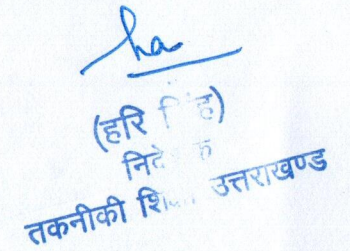 ha
(हरि सिंह)
निदेशक
तकनीकी शिक्षा उत्तराखण्ड